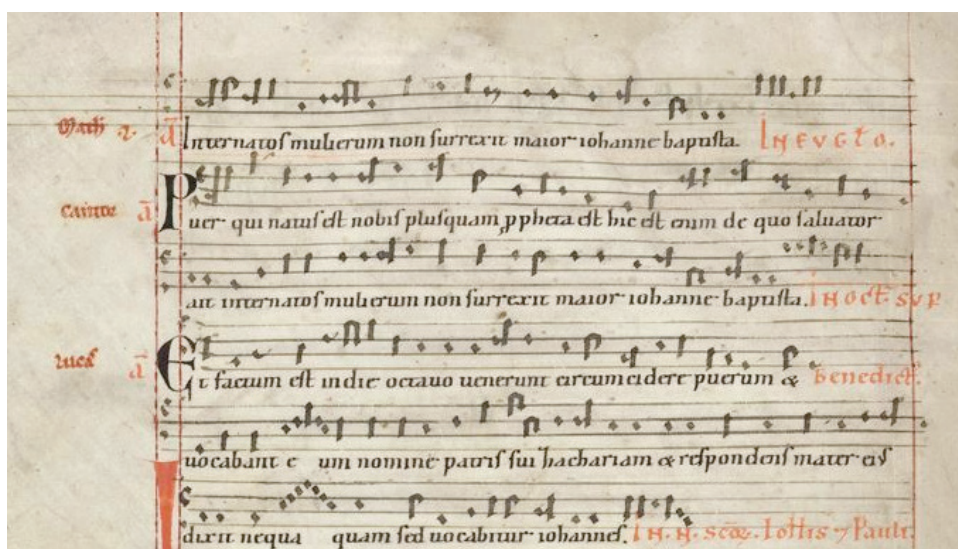 Internatos mulierum non surrexit maior iohanne baptista. IN EVGLO.
Puer qui natus est nobis plusquam ppheta est hic est enim de quo saluator
ait internatos mulierum non surrexit maior iohanne baptista. IN OCT. SVP
Et factum est in die octauo uenerunt circumcidere puerum & benedict.
uocabant e um nomine patris sui zachariam & respondens mater eius
dixit nequa quam sed uocabitur iohannes. IN. N. scōꝝ. Iohis ⁊ Pauli.